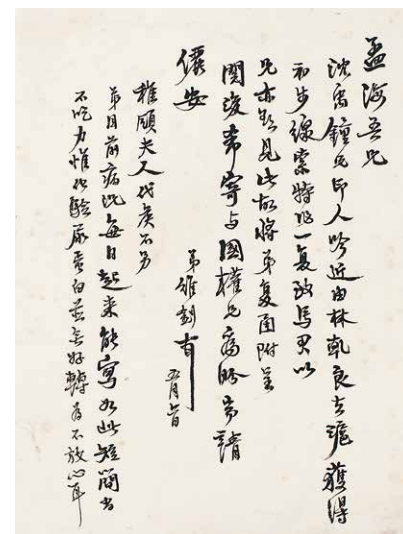 孟海吾兄
沈禹鐘兄印人吟近由林乾良去滬獲得
初步線索特此一复政馬君以
兄亦點見此故將弟复函附呈
閱後希寄与國權兄為盼常請
儷安
弟維釗有
五月
稚頤夫人代矦不另
弟目前病況每日起来能寫如此短簡尚
不吃力惟化驗尿蛋白並無好轉為不放心耳